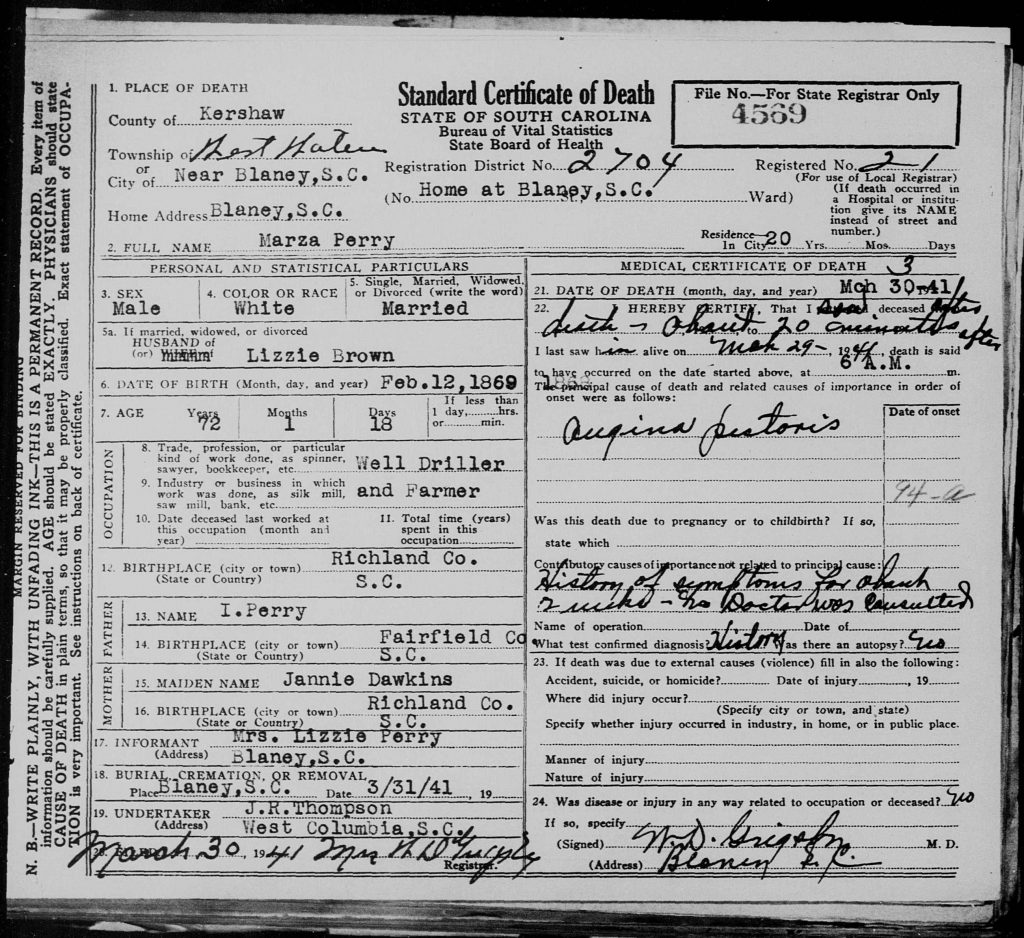 MARGIN RESERVED FOR BINDING
N. B.—WRITE PLAINLY, WITH UNFADING INK—THIS IS A PERMANENT RECORD. Every item of
information should be carefully supplied. AGE should be stated EXACTLY. PHYSICIANS should state
CAUSE OF DEATH in plain terms, so that it may be properly classified. Exact statement of OCCUPA-
TION is very important. See instructions on back of certificate.
Standard Certificate of Death
STATE OF SOUTH CAROLINA
Bureau of Vital Statistics
State Board of Health
File No.—For State Registrar Only
4569
1. PLACE OF DEATH
County of Kershaw
Township of
or
City of Near Blaney,S.C.
Home Address Blaney,S.C.
Registration District No. 2704
Registered No. 21
(For use of Local Registrar)
(No. Home at Blaney,S.C. St., Ward)
(If death occurred in
a Hospital or institu-
tion give its NAME
instead of street and
number.)
2. FULL NAME Marza Perry
Residence
In City 20 Yrs. Mos. Days
PERSONAL AND STATISTICAL PARTICULARS
3. SEX
Male
4. COLOR OR RACE
White
5. Single, Married, Widowed,
or Divorced (write the word)
Married
5a. If married, widowed, or divorced
HUSBAND of
(or) Lizzie Brown
6. DATE OF BIRTH (Month, day, and year) Feb.12,1869
7. AGE Years Months Days If less than
72 1 18 1 day, hrs.
or min.
OCCUPATION
8. Trade, profession, or particular
kind of work done, as spinner,
sawyer, bookkeeper, etc. Well Driller
9. Industry or business in which
work was done, as silk mill,
saw mill, bank, etc. and Farmer
10. Date deceased last worked at
this occupation (month and
year)
11. Total time (years)
spent in this
occupation
12. BIRTHPLACE (city or town) Richland Co.
(State or Country) S.C.
FATHER
13. NAME I.Perry
14. BIRTHPLACE (city or town) Fairfield Co.
(State or Country) S.C.
MOTHER
15. MAIDEN NAME Jannie Dawkins
16. BIRTHPLACE (city or town) Richland Co.
(State or Country) S.C.
17. INFORMANT Mrs. Lizzie Perry
(Address) Blaney,S.C.
18. BURIAL, CREMATION, OR REMOVAL
Place Blaney,S.C. Date 3/31/41, 19
19. UNDERTAKER J.R.Thompson
(Address) West Columbia,S.C.
March 30, 1941 Mrs
Registrar.
MEDICAL CERTIFICATE OF DEATH 3
21. DATE OF DEATH (month, day, and year) Mch 30-41
22. I HEREBY CERTIFY, That I deceased after
death - about to 20 minutes after
I last saw him alive on Mch 29-, 1941, death is said
to have occurred on the date started above, at 6 A.M. m.
The principal cause of death and related causes of importance in order of
onset were as follows:
Date of onset
Angina pectoris
94-a
Was this death due to pregnancy or to childbirth? If so,
state which
Contributory causes of importance not related to principal cause:
History of symptoms for about
2 weeks - No Doctor was consulted
Name of operation Date of
What test confirmed diagnosis? History Was there an autopsy? No
23. If death was due to external causes (violence) fill in also the following:
Accident, suicide, or homicide? Date of injury , 19
Where did injury occur?
(Specify city or town, and state)
Specify whether injury occurred in industry, in home, or in public place.
Manner of injury
Nature of injury
24. Was disease or injury in any way related to occupation or deceased? No
If so, specify
(Signed) W.D. Grigsby M. D.
(Address) Blaney S.C.